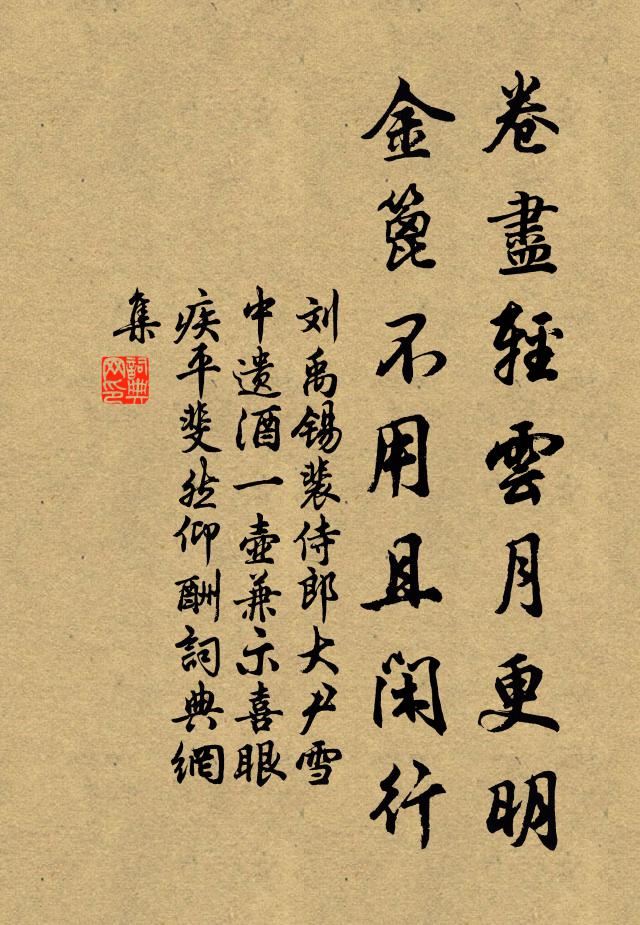 卷盡輕雲月更明
金篦不用且閑行
刘禹锡裴侍郎大尹雪
中遗酒一壶兼示喜眼
疾平斐然仰酬詞典網
集
詞典
网印